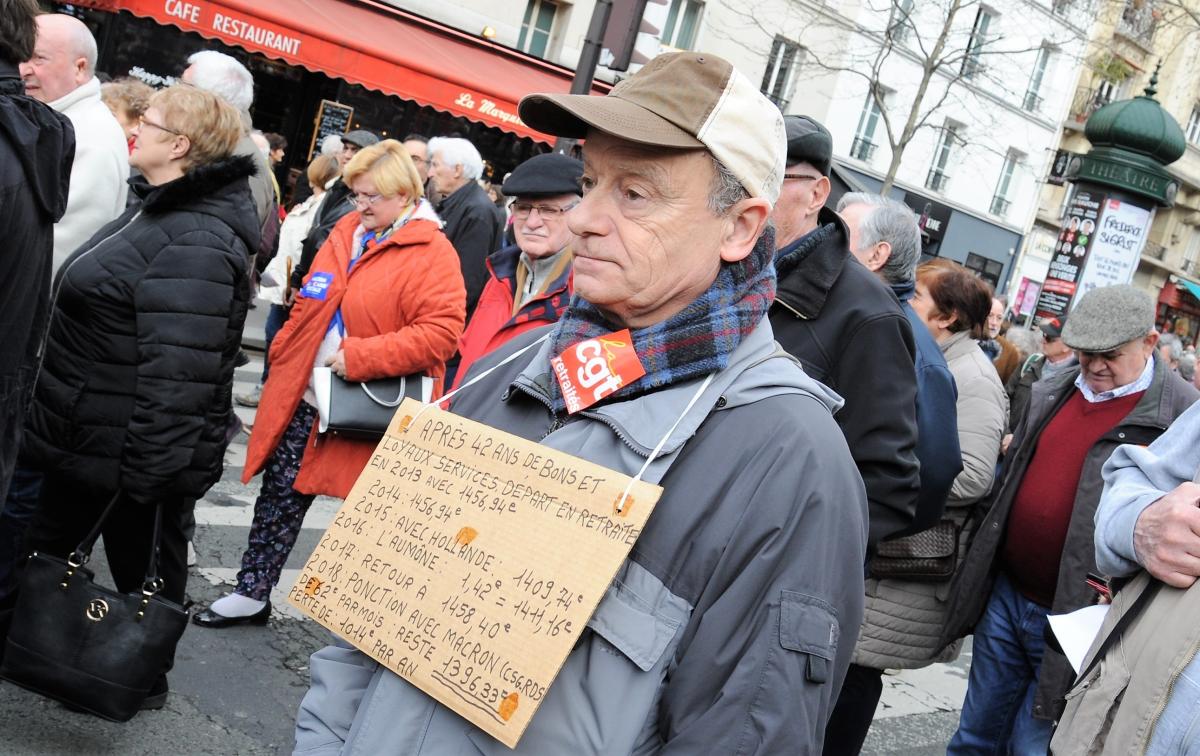 CAFE RESTAURANT
La Marqu
THÉATRE
la
cgt
retraités
APRÈS 42 ANS DE BONS ET
LOYAUX SERVICES DÉPART EN RETRAITE
EN 2013 AVEC 1456,94€
2014: 1456,94€
2015: AVEC HOLLANDE: 1409,74€
2016: L'AUMÔNE: 1,42€ = 1411,16€
2017: RETOUR À 1458 40€
2018: PONCTION AVEC MACRON (CSG.RDS
DE 62€ PAR MOIS: RESTE 1396.33€
PERTE DE: 1014€ PAR AN